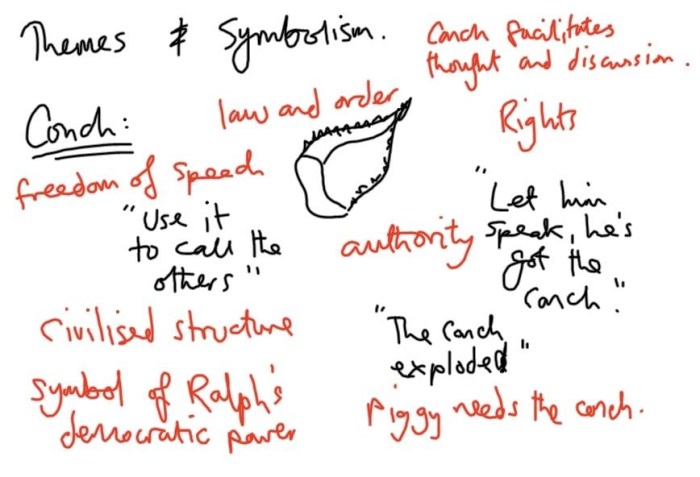 Themes & Symbolism.
Conch facilitates
thought and discussion.
law and order
Rights
Conch:
freedom of speech
"Use it
to call the
others"
authority
"Let him
speak, he's
got the
conch."
Civilised structure
"The conch
exploded"
Symbol of Ralph's
democratic power
Piggy needs the conch.